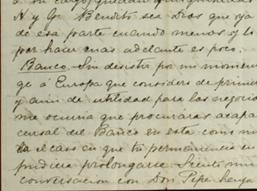 N y G. Bendito sea Dios que
de esa parte cuando menos y lo
por hacer mas adelante es poco.
Banco. Sin desistir por mi
á Europa que considero de
y aun de utilidad para los negocio
me ocurria que procuráras
cursal del Banco en esta
el caso en que tu permanencia en
pudiera prolongarse. Siento mi
conversacion con Don Pepe